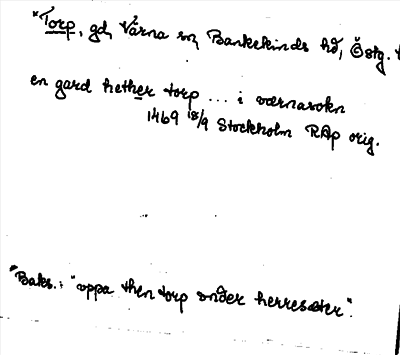 *Torp, gd, Vårna sn, Bankekinds hd, Östg. l
en gard hether torp ... i værnasokn
1469 18/9 Stockholm RAp orig.
*Baks.: "vppa then torp vnder herresæter".